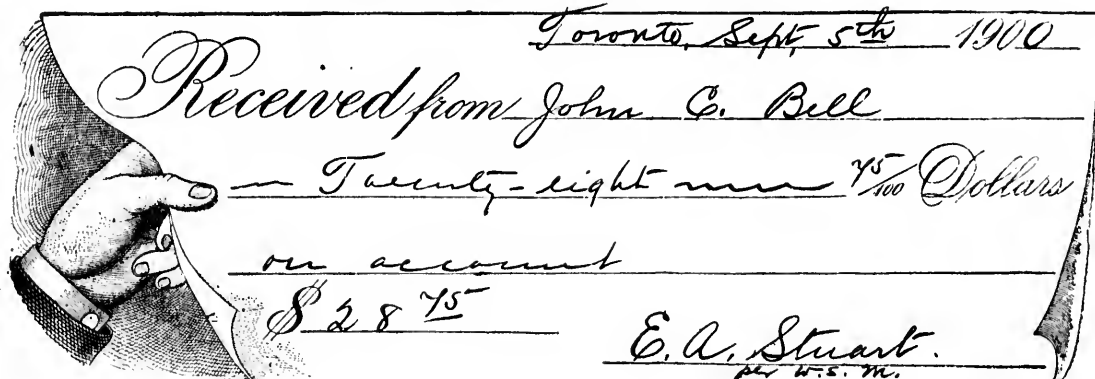 Toronto, Sept, 5th 1900
Received from John C. Bell
Twenty-eight 75/100 Dollars
on account
$ 28 75
E. A. Stuart.
per W. S. M.